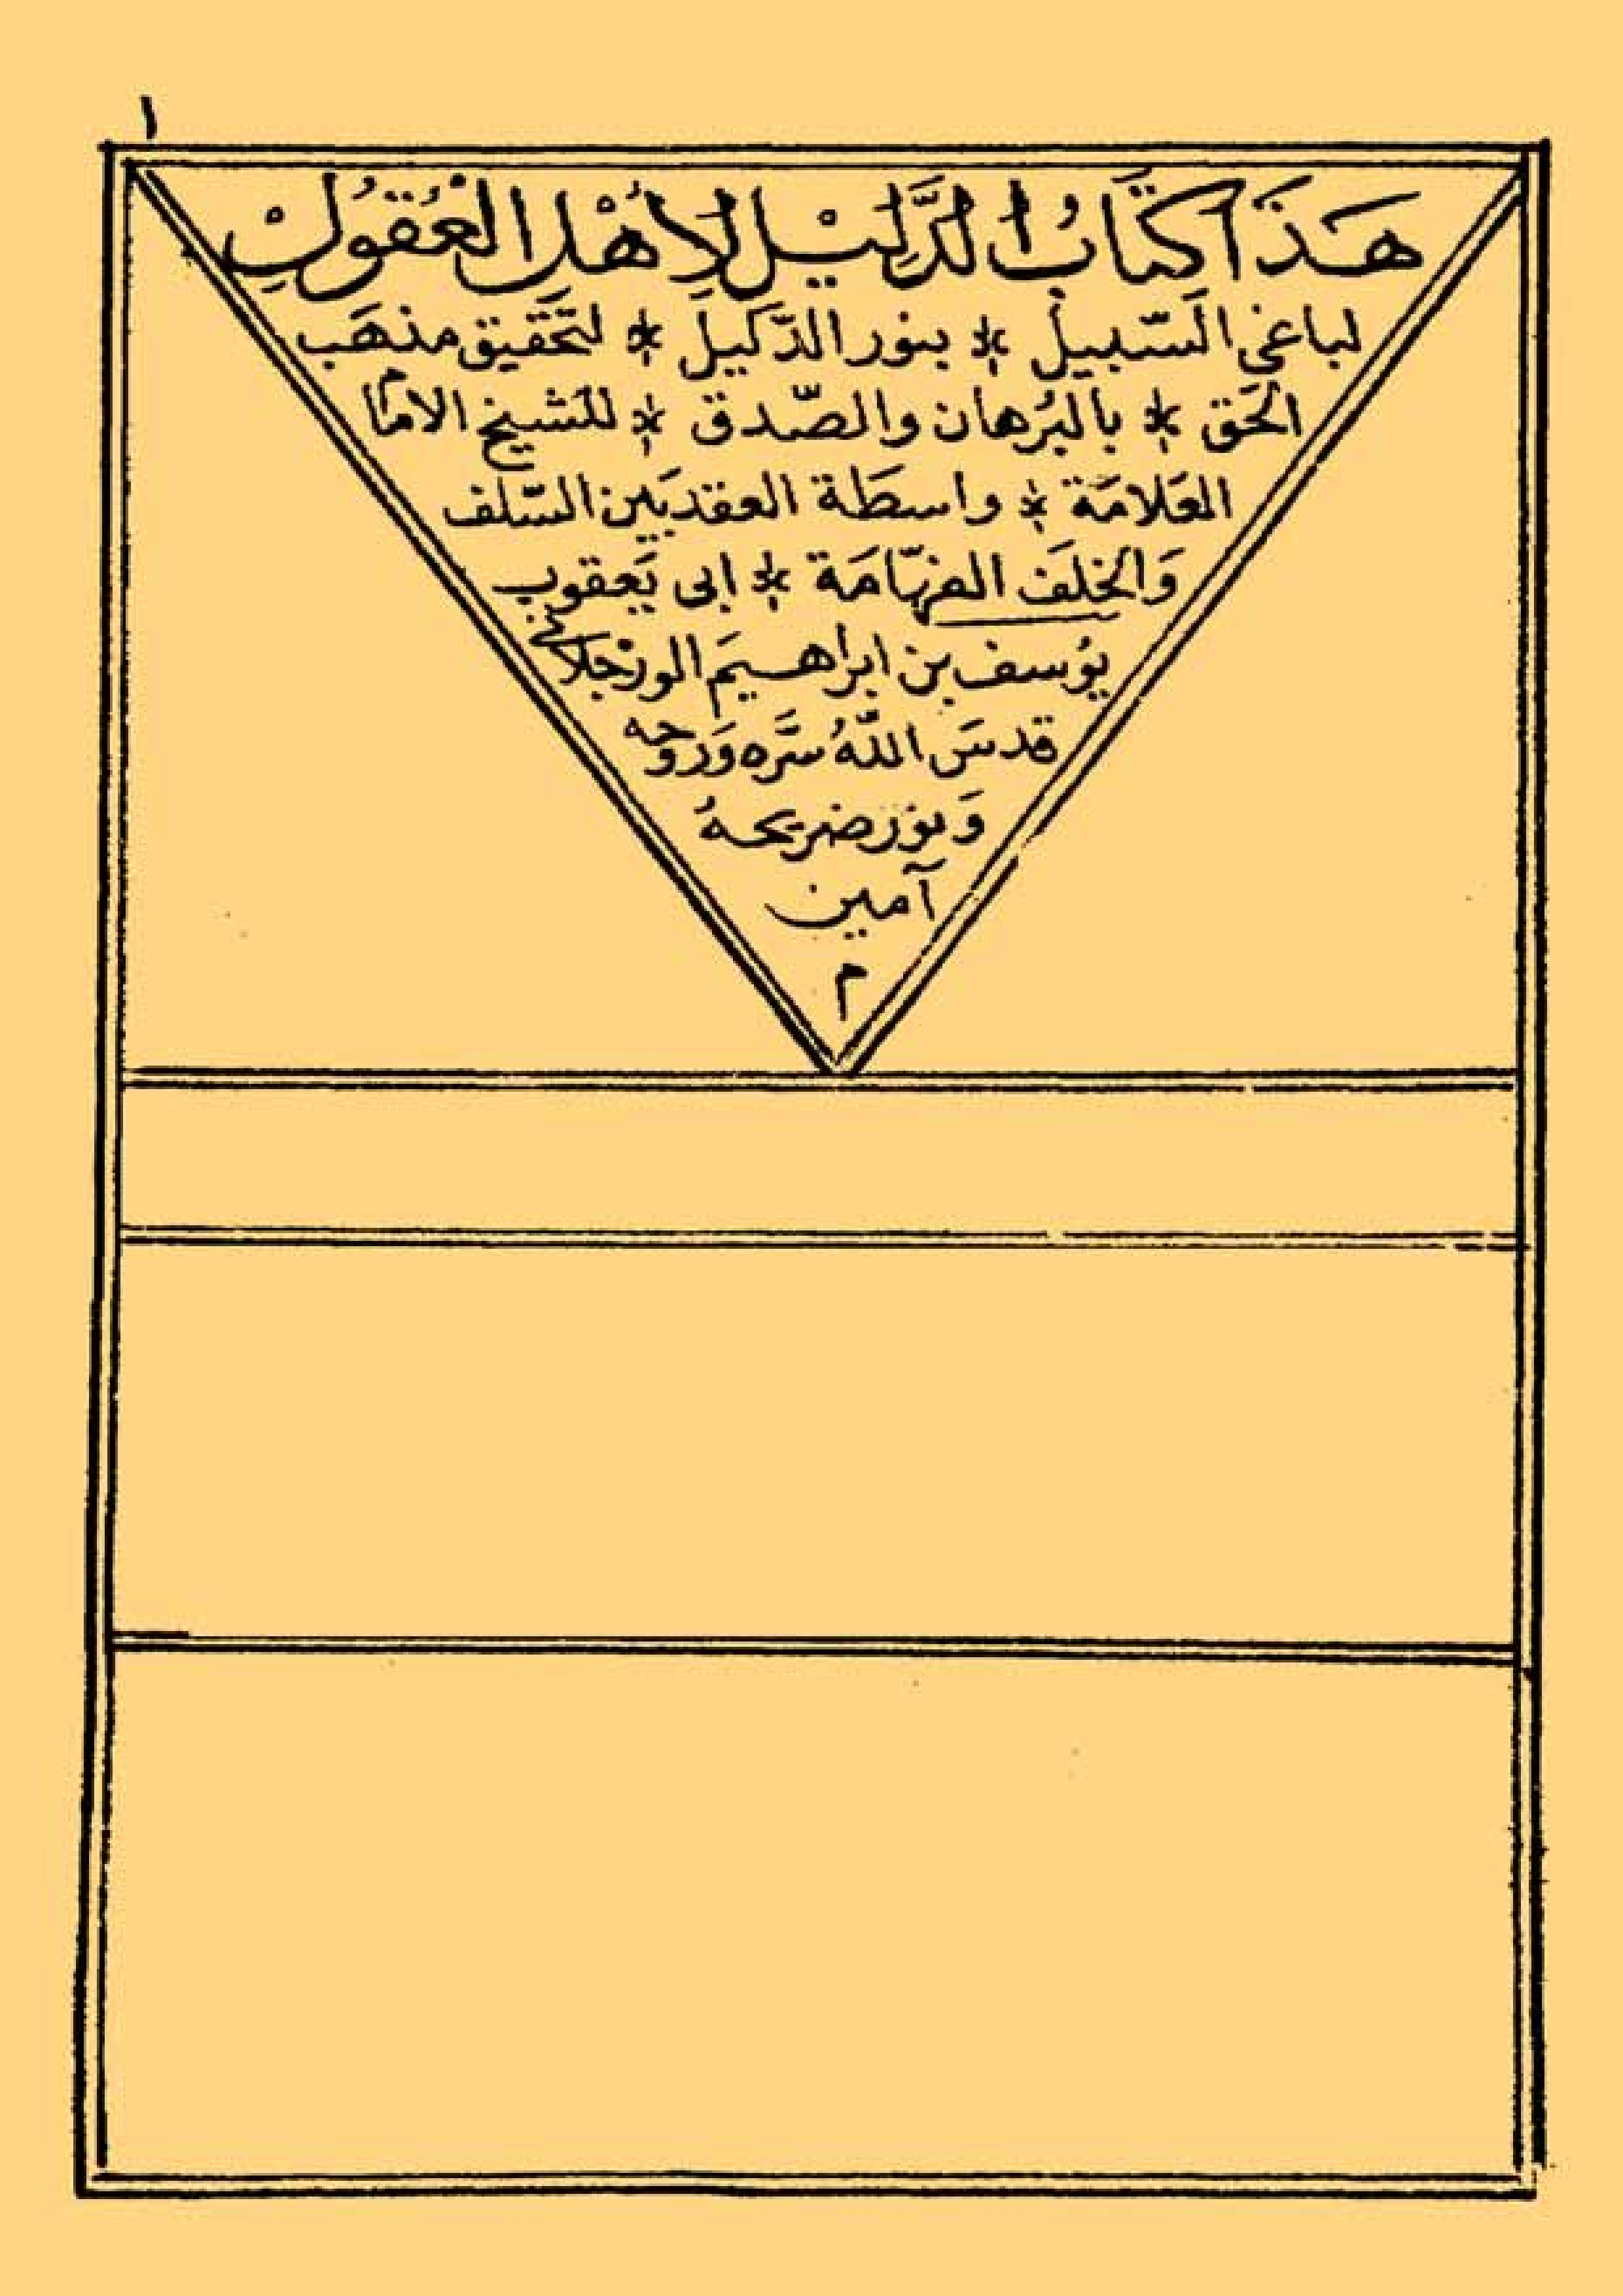 ١
هَذَا كتَابُ الدَّلِيْل لِاَهْل الْعُقوُلِ
لباغي السّبيل * بنور الدّليل * لتحَقيق مذهَب
الحَق * بالبُرهان والصّدق * للشيخ الامام
العَلامَة * واسطَة العقديَين السّلف
وَالخلَف الفهّامَة * ابى يَعقوب
يوُسف بن ابراهيَم الورْجلانى
قدسَ اللّهُ سَّره وَروُحه
وَنوّر ضريحهُ
آمين
م